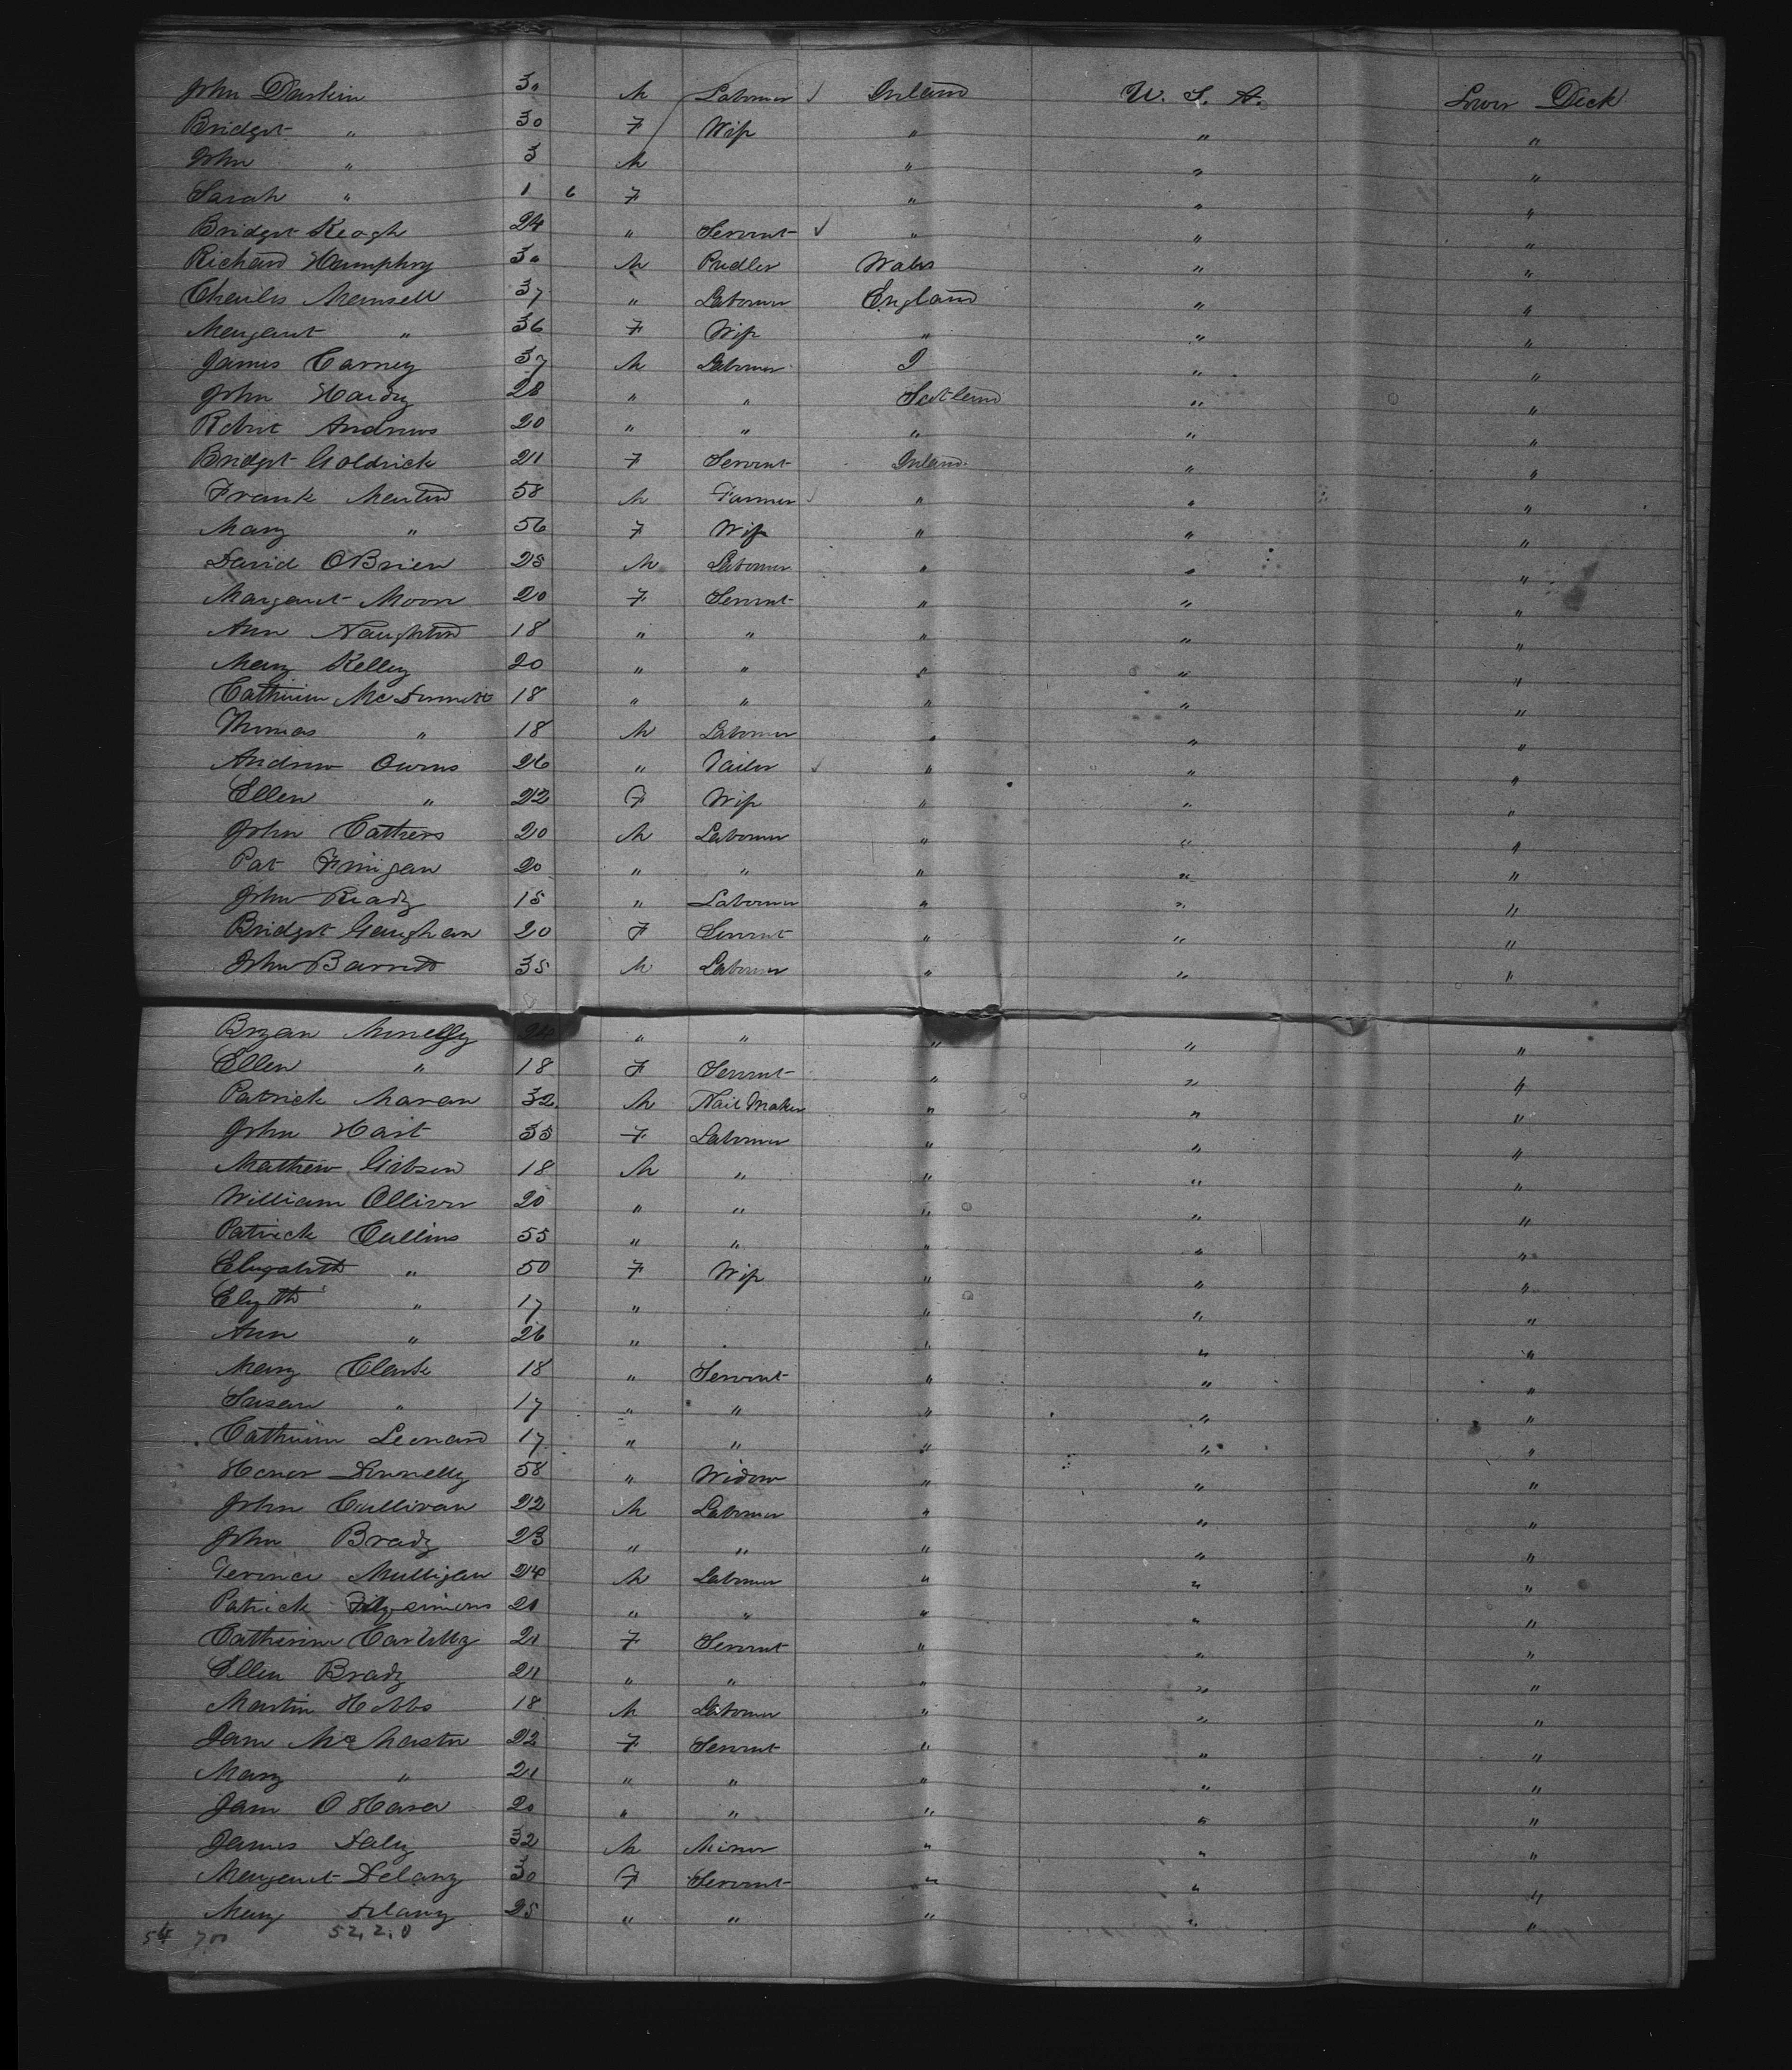 John Durkin 30 M Labourer ✓ Ireland U. S. A. Lower Deck
Bridget " 30 F Wife " " "
John " 3 M " " "
Sarah " 1 6 F " " "
Bridget Keogh 24 " Servant ✓ " " "
Richard Humphry 30 M Pudler Wales " "
Charles Mansell 37 " Labourer England " "
Margaret " 36 F Wife " " "
James Carney 37 M Labourer I " "
John Hardy 28 " " Scotland " "
Robert Andrews 20 " " " " "
Bridget Goldrick 21 F Servant Ireland " "
Frank Martin 58 M Farmer ✓ " " "
Mary " 56 F Wife " " "
David OBrien 25 M Labourer " " "
Margaret Moon 20 F Servant " " "
Ann Naughton 18 " " " " "
Mary Kelley 20 " " " " "
Catherine McDermott 18 " " " " "
Thomas " 18 M Labourer " " "
Andrew Owens 26 " Tailor ✓ " " "
Ellen " 22 F Wife " " "
John Cathers 20 M Labourer " " "
Pat Finigan 20 " " " " "
John Ready 15 " Labourer " " "
Bridget Gaughan 20 F Servant " " "
John Barrett 35 M Labourer " " "
Bryan " " " " "
Ellen " 18 F Servant " " "
Patrick Maran 32 M Nail Maker " " "
John Hart 35 F Labourer " " "
Mathew Gibson 18 M " " " "
William Olliver 20 " " " " "
Patrick Cullins 55 " " " " "
Elizabeth " 50 F Wife " " "
Elizth " 17 " " " "
Ann " 26 " " " "
Mary Clark 18 " Servant " " "
Susan " 17 " " " " "
Catherine Leonard 17 " " " " "
Honor Donnelly 58 " Widow " " "
John Cullivan 22 M Labourer " " "
John Brady 23 " " " " "
Terence Mulligan 24 M Labourer " " "
Patrick Fitzsimons 21 " " " " "
Catherine 21 F Servant " " "
Ellen Brady 21 " " " " "
Martin Hobbs 18 M Labourer " " "
Jane McMaster 22 F Servant " " "
Mary " 21 " " " " "
Jane OHara 20 " " " " "
James Daly 32 M Miner " " "
Margaret Delany 30 F Servant " " "
Mary Delany 25 " " " " "
54 700 52,2,0